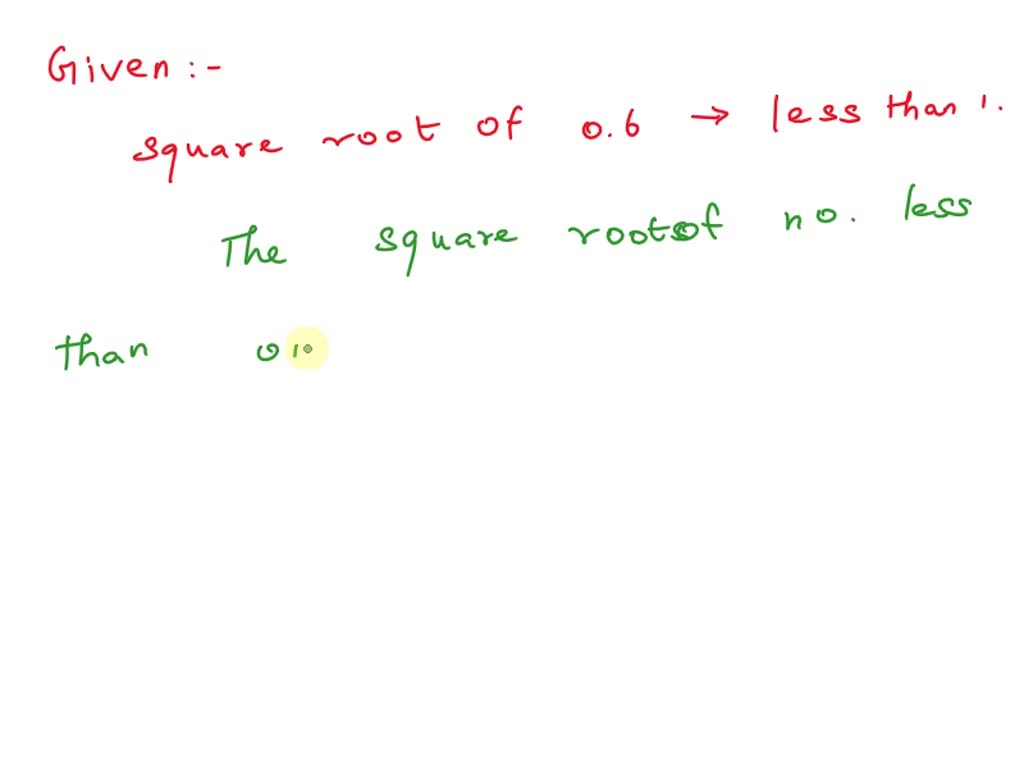 Given :-
square root of 0.6 → less than 1.
The square roots of no. less
than